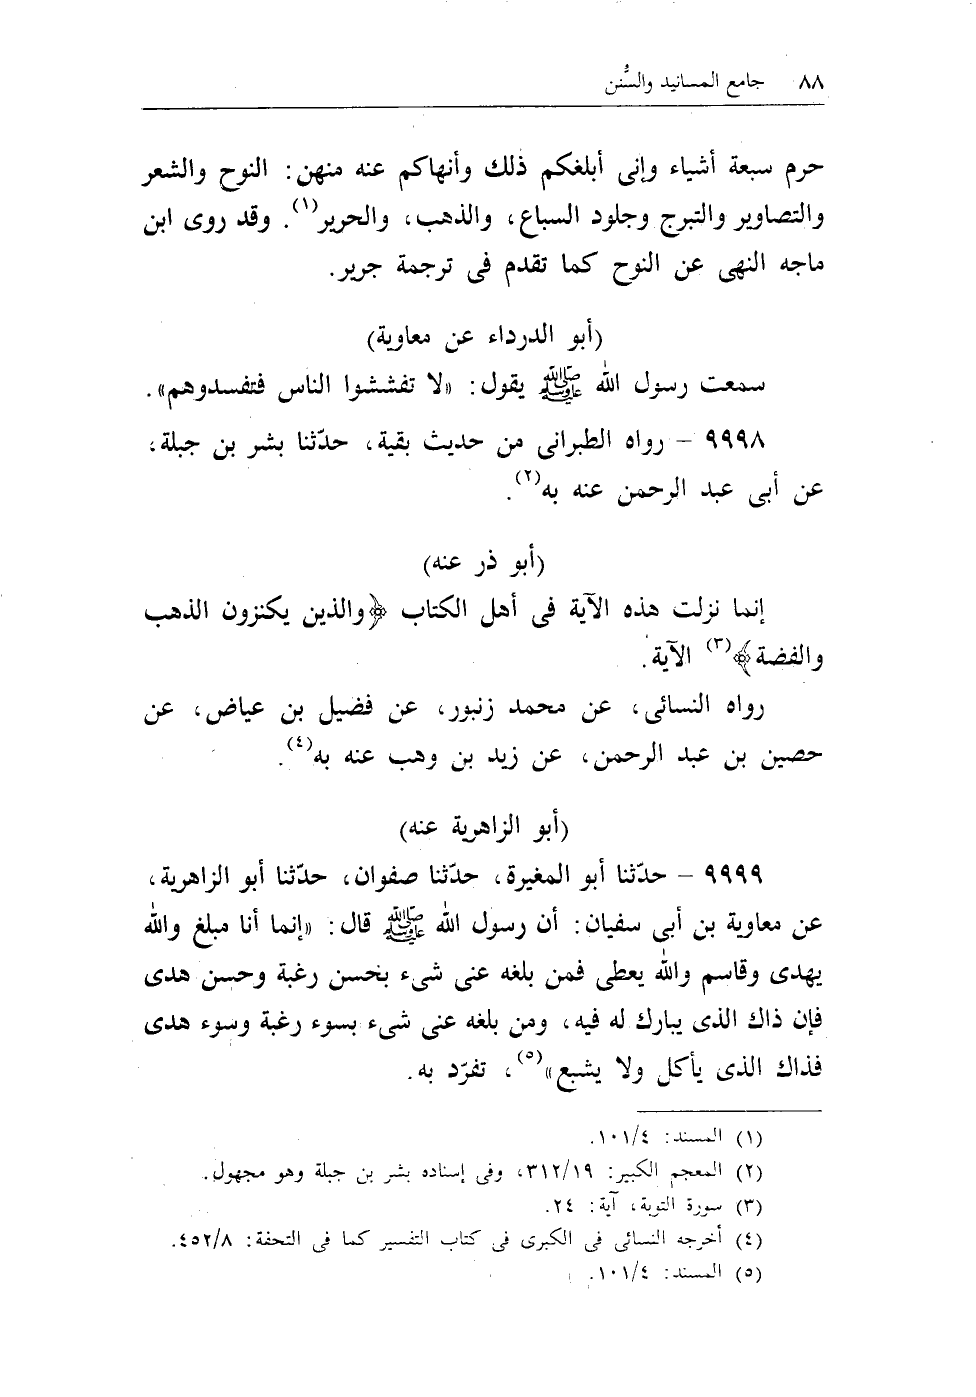 ٨٨ جامع المسانيد والسُّنن
حرم سبعة أشياء وإنى أبلغكم ذلك وأنهاكم عنه منهن: النوح والشعر
والتصاوير والتبرج وجلود السباع، والذهب، والحرير(١). وقد روى ابن
ماجه النهى عن النوح كما تقدم فى ترجمة جرير.
(أبو الدرداء عن معاوية)
سمعت رسول الله ﷺ يقول: «لا تفششوا الناس فتفسدوهم».
٩٩٩٨ - رواه الطبرانى من حديث بقية، حدّثنا بشر بن جبلة،
عن أبى عبد الرحمن عنه به(٢).
(أبو ذر عنه)
إنما نزلت هذه الآية فى أهل الكتاب ﴿والذين يكنزون الذهب
والفضة﴾(٣) الآية.
رواه النسائى، عن محمد زنبور، عن فضيل بن عياض، عن
حصين بن عبد الرحمن، عن زيد بن وهب عنه به(٤).
(أبو الزاهرية عنه)
٩٩٩٩ - حدّثنا أبو المغيرة، حدّثنا صفوان، حدّثنا أبو الزاهرية،
عن معاوية بن أبى سفيان: أن رسول الله ﷺ قال: «إنما أنا مبلغ والله
يهدى وقاسم والله يعطى فمن بلغه عنى شىء بخسن رغبة وحسن هدى
فإن ذاك الذى يبارك له فيه، ومن بلغه عنى شىء بسوء رغبة وسوء هدى
فذاك الذى يأكل ولا يشبع»(٥)، تفرّد به.
(١) المسند: ١٠١/٤.
(٢) المعجم الكبير: ٣١٢/١٩، وفى إسناده بشر بن جبلة وهو مجهول.
(٣) سورة التوبة، آية: ٢٤.
(٤) أخرجه النسائى فى الكبرى فى كتاب التفسير كما فى التحفة: ٤٥٢/٨.
(٥) المسند: ١٠١/٤.